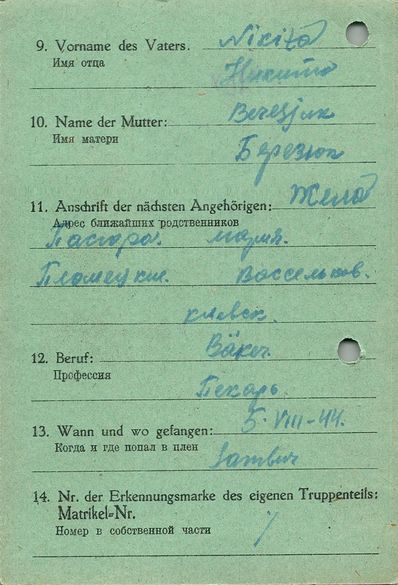 9. Vorname des Vaters. Nikita
Имя отца Никита
10. Name der Mutter: Beresjuk
Имя матери Березюк
11. Anschrift der nächsten Angehörigen: Жена
Адрес ближайших родственников
мария.
Киевск.
12. Beruf: Bäker
Профессия Пекарь
13. Wann und wo gefangen: 5-VIII-44.
Когда и где попал в плен Sambir
14. Nr. der Erkennungsmarke des eigenen Truppenteils:
Matrikel=Nr.
Номер в собственной части /